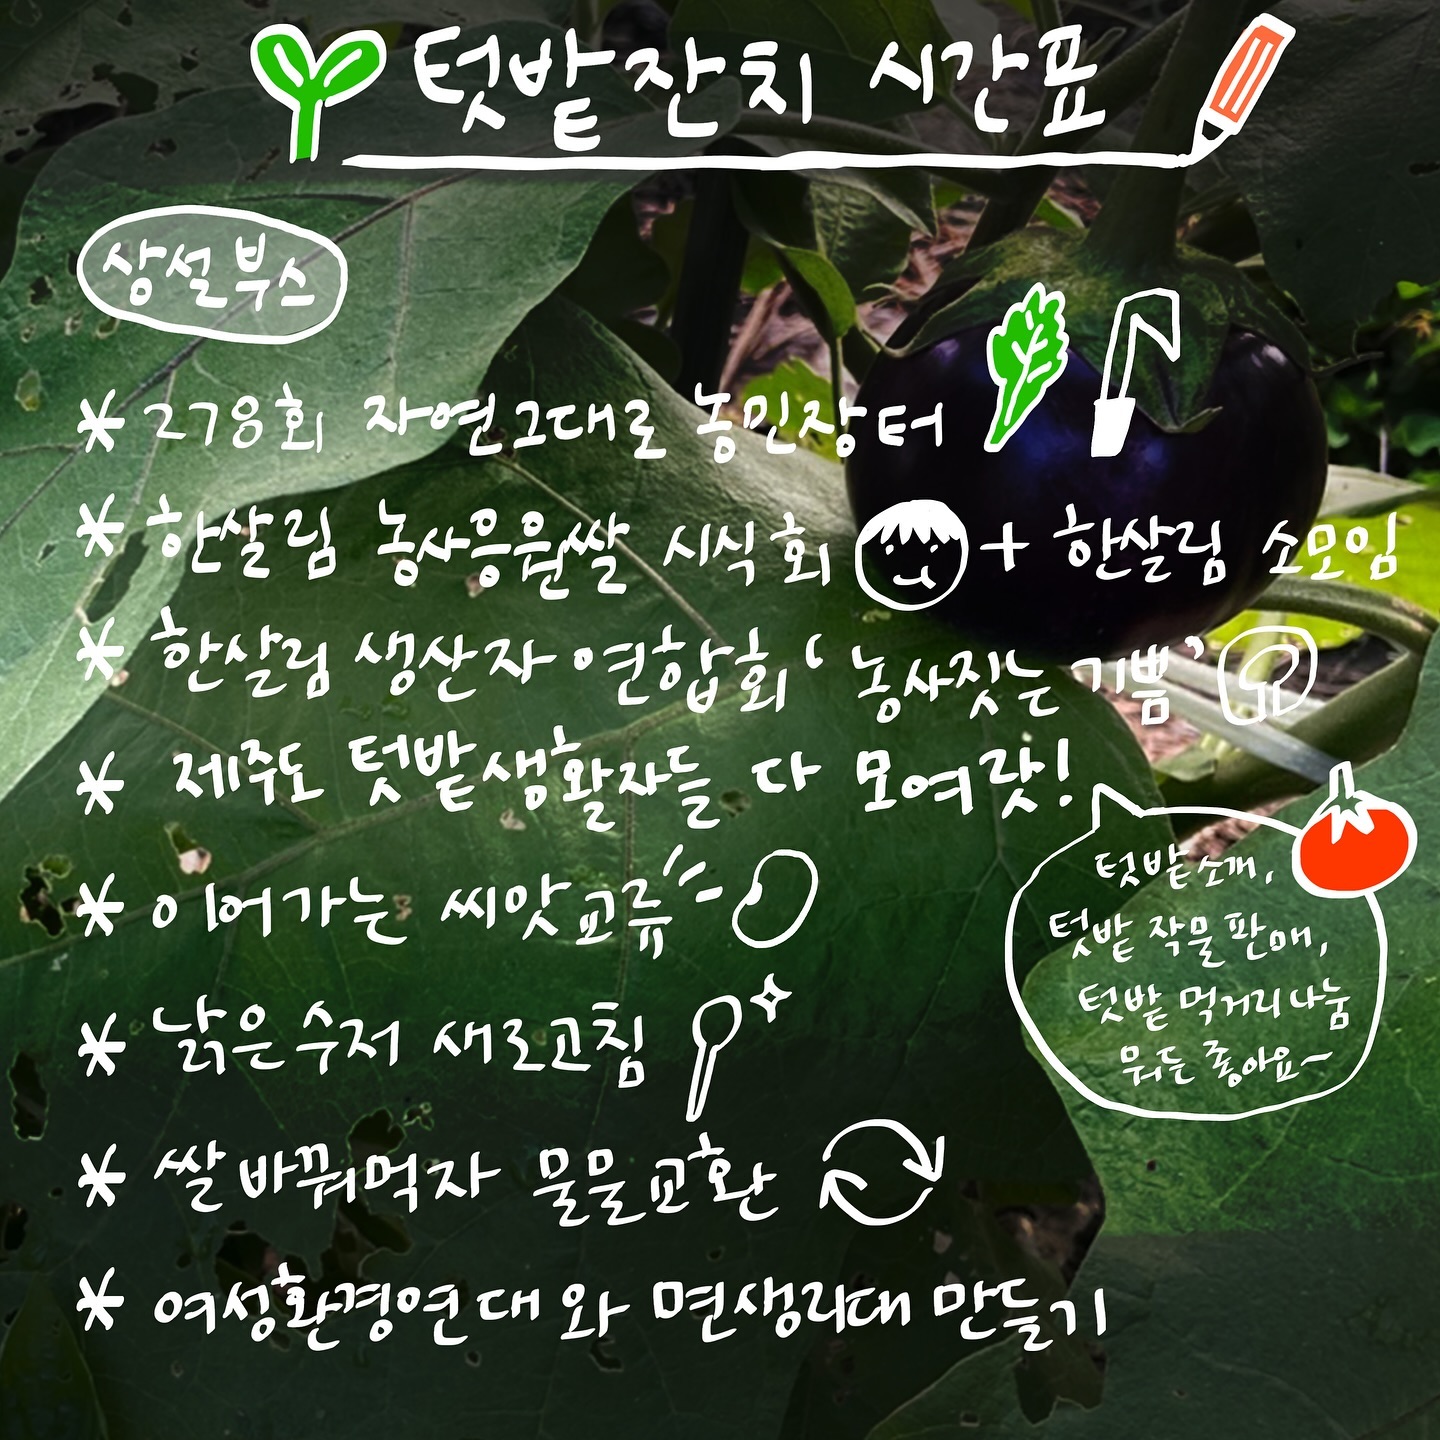 텃밭잔치 시간표
상설부스
* 278회 자연그대로 농민장터
* 한살림 농사응원쌀 시식회 + 한살림 소모임
* 한살림 생산자 연합회 '농사짓는 기쁨'
* 제주도 텃밭생활자들 다 모여랏!
텃밭소개,
텃밭 작물판매,
텃밭 먹거리나눔
뭐든 좋아요~
* 이어가는 씨앗교류
* 낡은수저 새로고침
* 쌀바꿔먹자 물물교환
* 여성환경연대와 면생리대 만들기